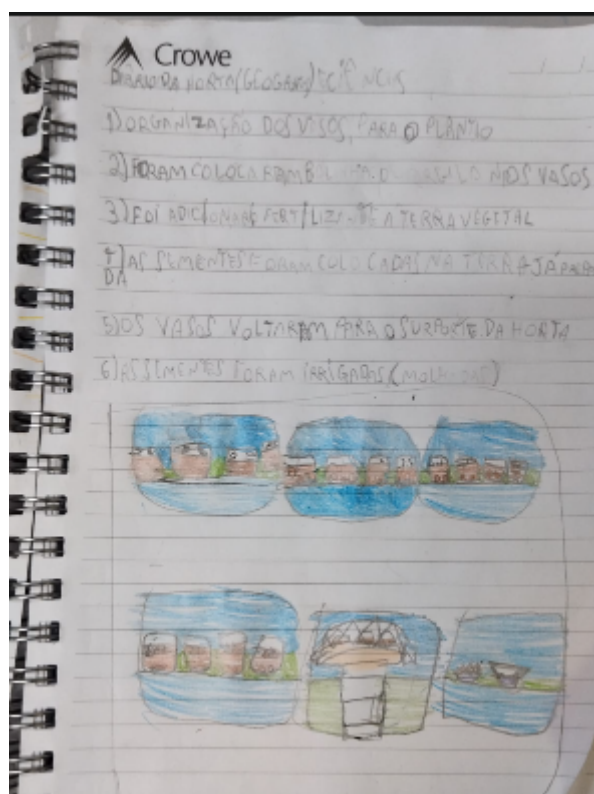 Crowe
DIÁRIO DA HORTA (GEOGRAFIA) E CIÊNCIA
1) ORGANIZAÇÃO DOS VASOS, PARA O PLANTIO
2) FORAM NOS VASOS
3) FOI FERTILIZANTE A TERRA VEGITAL
4) AS SEMENTES FORAM COLOCADAS NA TERRA JÁ
DA
5) OS VASOS VOLTARAM PARA O SURPORTE DA HORTA
6) AS SEMENTES FORAM IRRIGADAS (MOLHADAS)